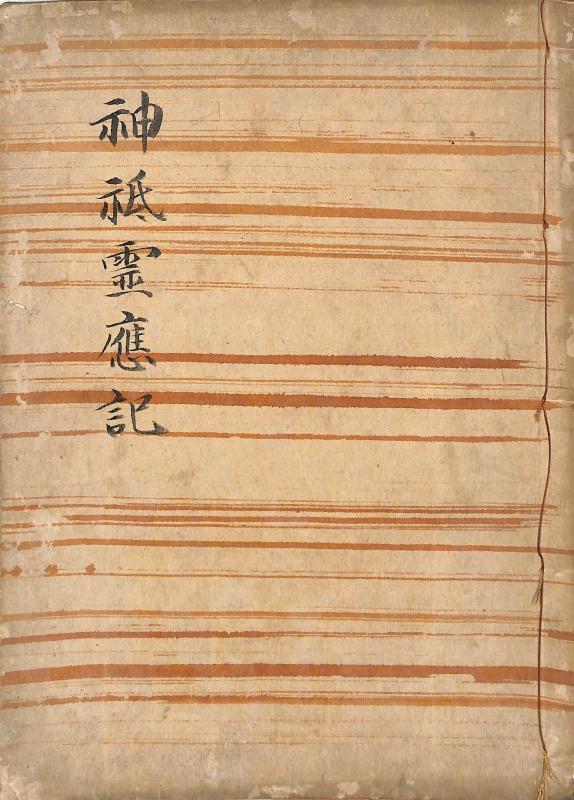 神祇靈應記